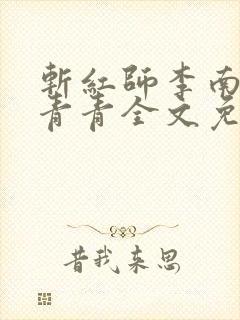 斬紅師李南
青青全文免
昔我来思